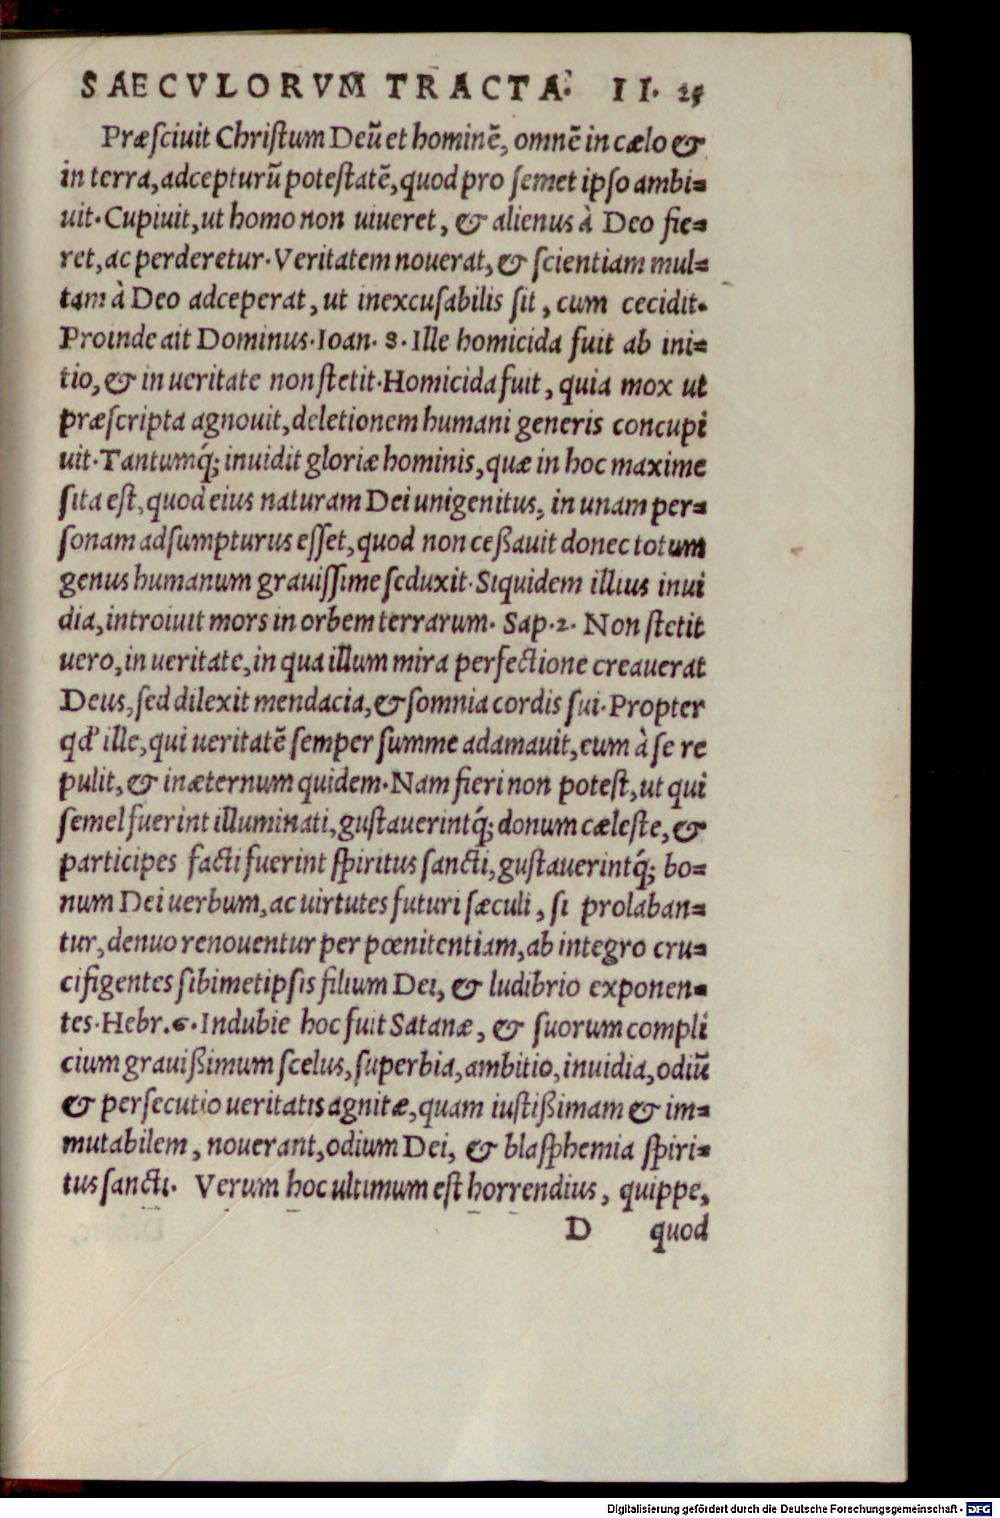 SAECVLORVM TRACTA: II. 25
Præſciuit Chriſtum Deũ et hominẽ, omnẽ in cælo &
in terra, adcepturũ poteſtatẽ, quod pro ſemet ipſo ambi-
uit. Cupiuit, ut homo non uiueret, & alienus à Deo fie-
ret, ac perderetur. Veritatem nouerat, & ſcientiam mul-
tam à Deo adceperat, ut inexcuſabilis ſit, cum cecidit.
Proinde ait Dominus. Ioan. 8. Ille homicida fuit ab ini-
tio, & in ueritate non ſtetit. Homicida fuit, quia mox ut
præſcripta agnouit, deletionem humani generis concupi
uit. Tantumq́; inuidit gloriæ hominis, quæ in hoc maxime
ſita eſt, quòd eius naturam Dei unigenitus, in unam per-
ſonam adſumpturus eſſet, quod non ceßauit donec totum
genus humanum grauiſſime ſeduxit. Siquidem illius inui
dia, introiuit mors in orbem terrarum. Sap. 2. Non ſtetit
uero, in ueritate, in qua illum mira perfectione creauerat
Deus, ſed dilexit mendacia, & ſomnia cordis ſui. Propter
qd' ille, qui ueritatẽ ſemper ſumme adamauit, eum à ſe re
pulit, & in æternum quidem. Nam fieri non poteſt, ut qui
ſemel fuerint illuminati, guſtauerintq́; donum cæleſte, &
participes facti fuerint ſpiritus ſancti, guſtauerintq́; bo-
num Dei uerbum, ac uirtutes futuri ſæculi, ſi prolaban-
tur, denuo renouentur per pœnitentiam, ab integro cru-
cifigentes ſibimetipſis filium Dei, & ludibrio exponen-
tes. Hebr. 6. Indubie hoc fuit Satanæ, & ſuorum compli
cium grauißimum ſcelus, ſuperbia, ambitio, inuidia, odiũ
& perſecutio ueritatis agnitæ, quam iuſtißimam & im-
mutabilem, nouerant, odium Dei, & blaſphemia ſpiri-
tus ſancti. Verum hoc ultimum eſt horrendius, quippe,
D quod
Digitalisierung gefördert durch die Deutsche Forschungsgemeinschaft - DFG